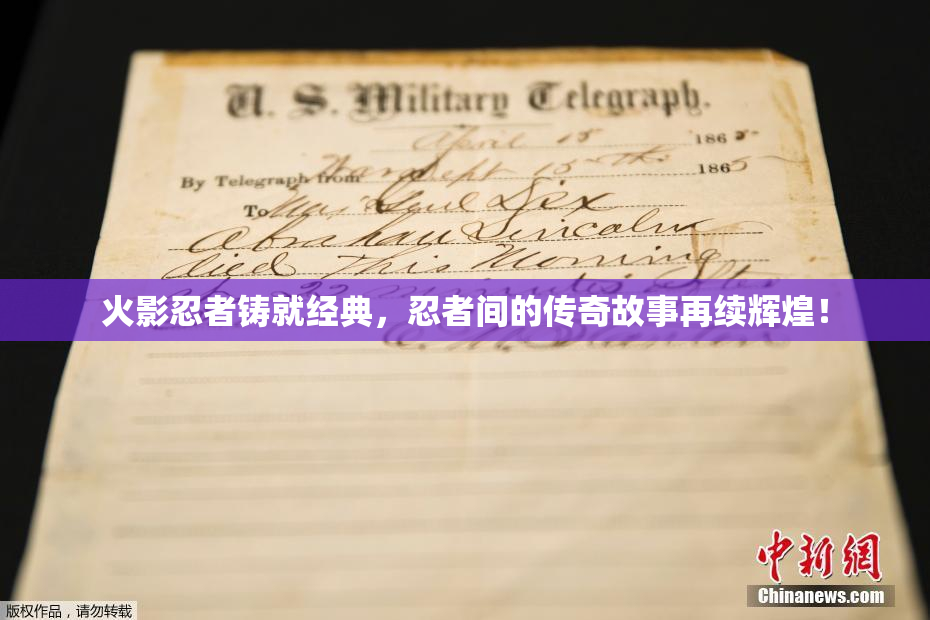 U. S. Military Telegraph.
April 15 1865
By Telegraph from War Dept 15th 1865
To Maj Genl Dix
Abraham Lincoln
died This Morning
22 minutes after
火影忍者铸就经典，忍者间的传奇故事再续辉煌！
E. M. Stanton
中新網
Chinanews.com
版权作品，请勿转载